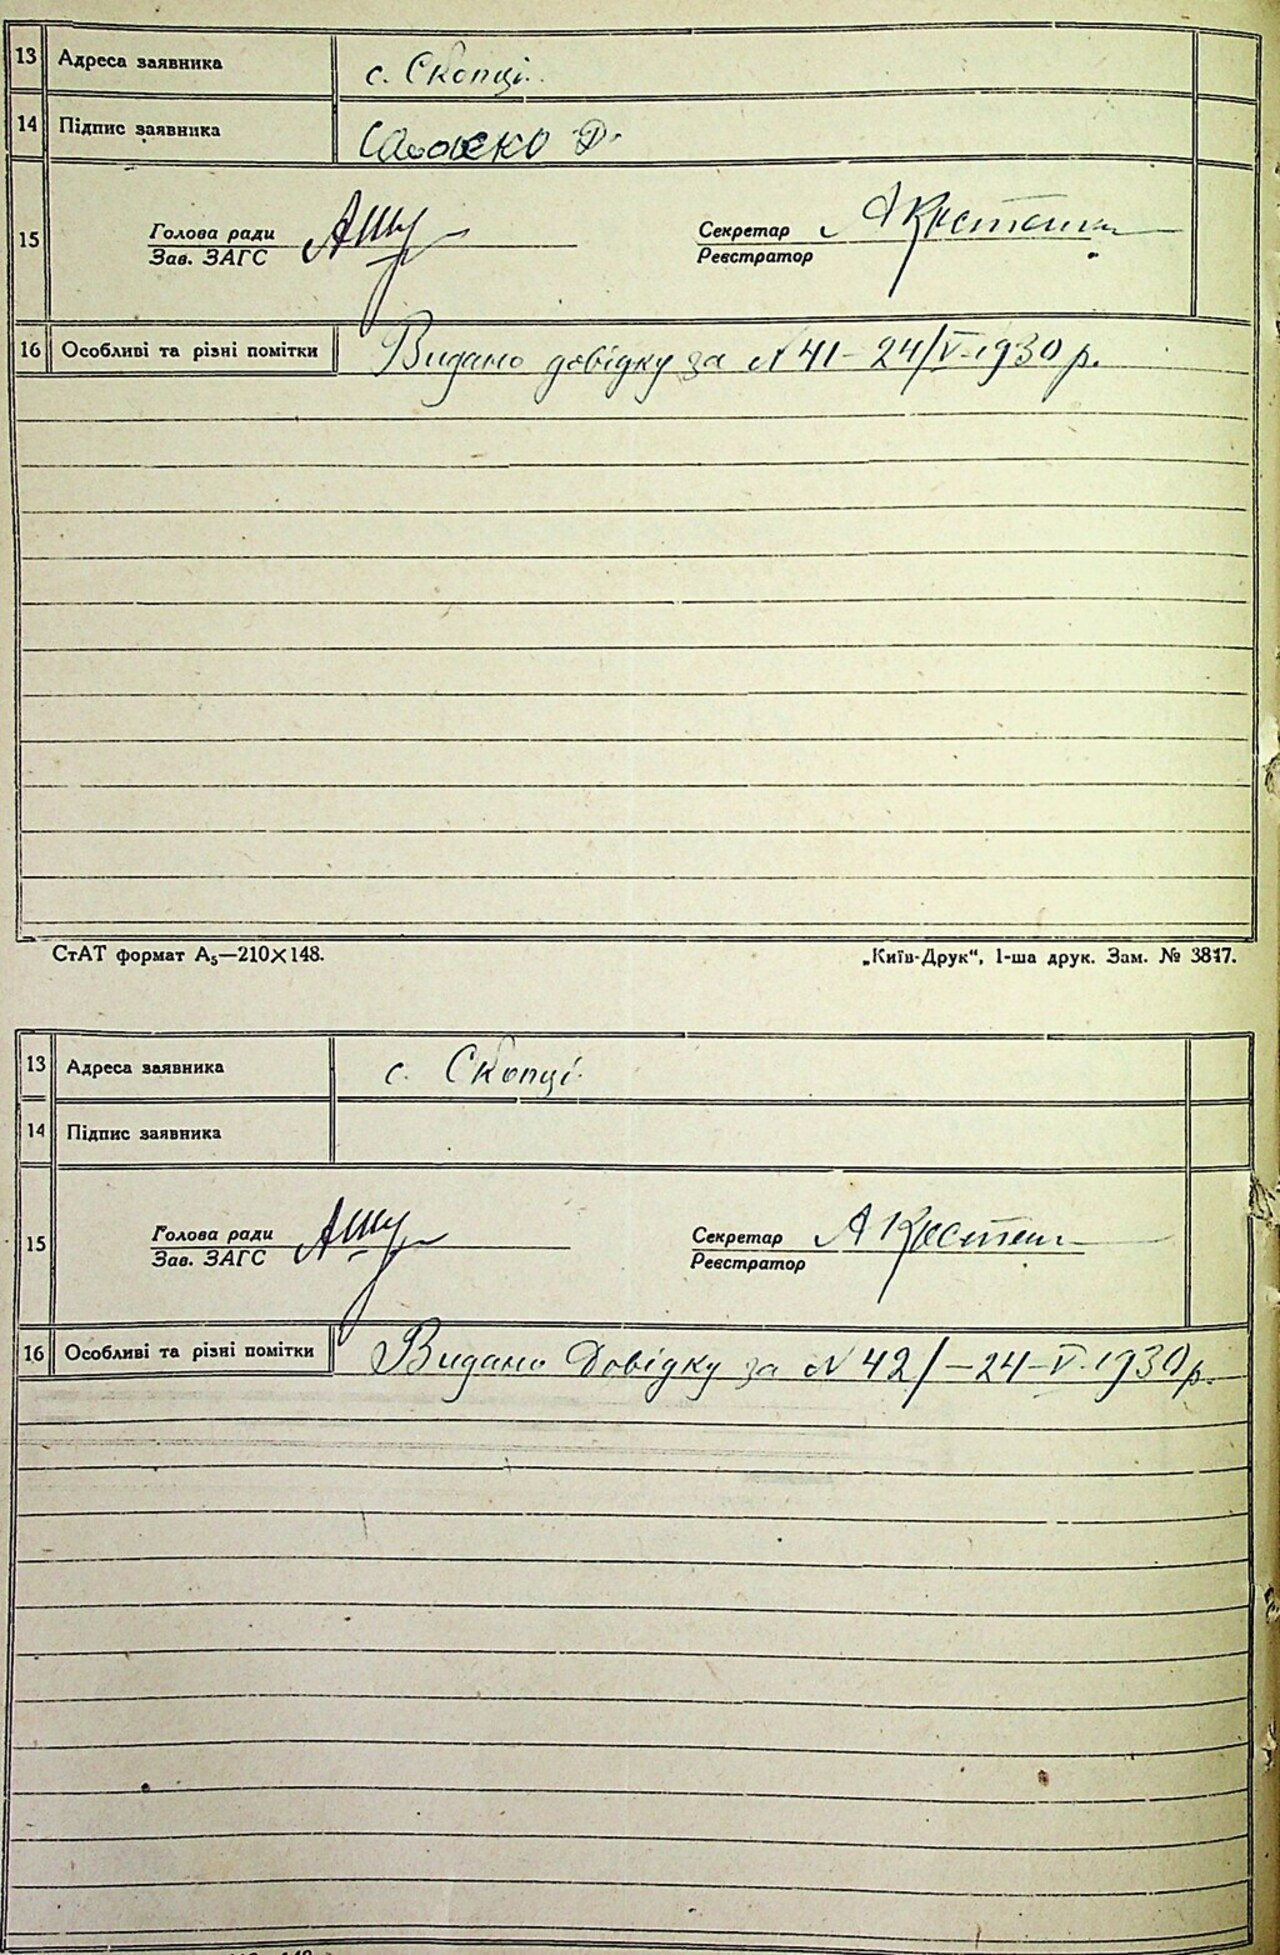 13 Адреса заявника с. Скопці.
14 Підпис заявника
15 Голова ради Секретар А Костен
Зав. ЗАГС Реєстратор
16 Особливі та різні помітки Видано довідку за N 41 - 24/V-1930 р.
СтАТ формат А₅—210×148. „Київ-Друк“, 1-ша друк. Зам. № 3817.
13 Адреса заявника с. Скопці.
14 Підпис заявника
15 Голова ради Секретар А Костен
Зав. ЗАГС Реєстратор
16 Особливі та різні помітки Видано Довідку за N 42/-24-V-1930р.